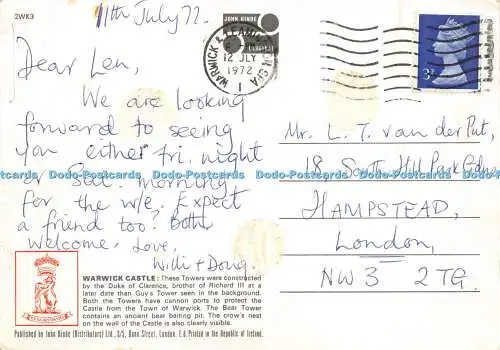 2WK3
11th July 72.
JOHN HINDE
ORIGINAL
WARWICK & LEAMINGTON SPA
12 JLY
1972
3P
Dear Len,
We are looking
forward to seeing
you either fri. night
or Sat. morning
for the w/e. Expect
a friend too? Both
welcome. Love,
Willi + Doug.
Mr. L. T. van der Put,
18 South Hill Park Gdns
HAMPSTEAD,
London,
NW3 2TG.
Dodo-Postcards Dodo-Postcards Dodo-Postcards
WARWICK CASTLE: These Towers were constructed
by the Duke of Clarence, brother of Richard III at a
later date than Guy's Tower seen in the background.
Both the Towers have cannon ports to protect the
Castle from the Town of Warwick. The Bear Tower
contains an ancient bear baiting pit. The crow's nest
on the wall of the Castle is also clearly visible.
Published by John Hinde (Distributors) Ltd., 3/5, Dane Street, London. E.6. Printed in the Republic of Ireland.